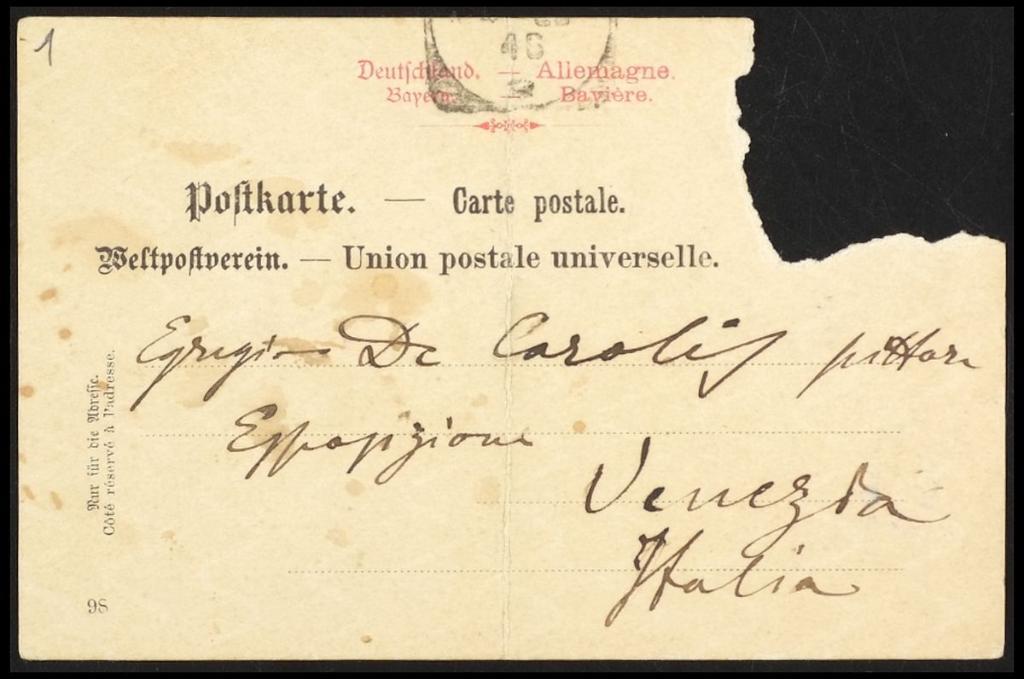 1
46
Deutschland. — Allemagne.
Bayern. — Bavière.
Postkarte. — Carte postale.
Weltpostverein. — Union postale universelle.
Egregio De Carolis pittore
Esposizione
Venezia
Italia
Nur für die Adresse.
Côté réservé à l'adresse.
98